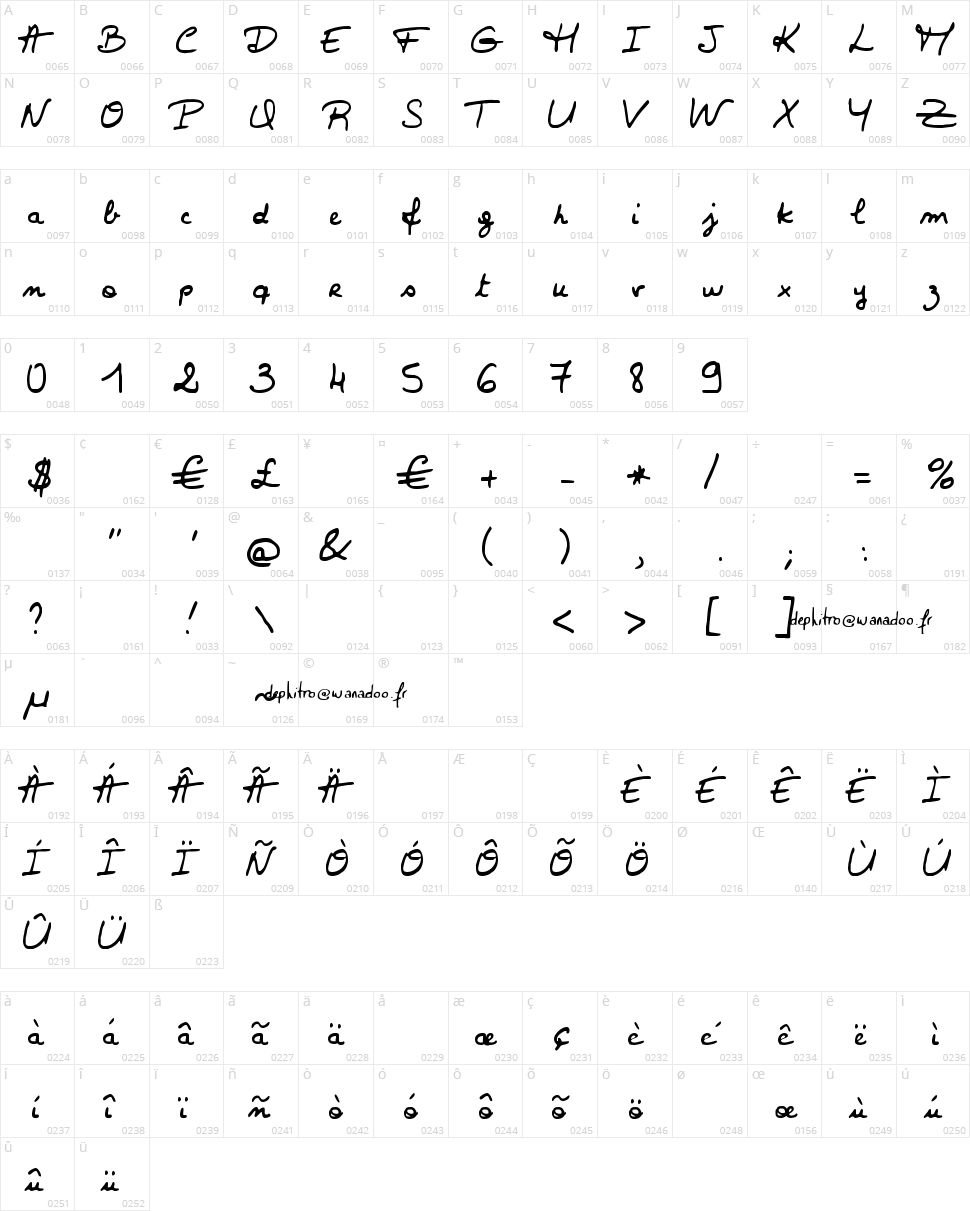 A B C D E F G H I J K L M
A B C D E F G H I J K L M
0065 0066 0067 0068 0069 0070 0071 0072 0073 0074 0075 0076 0077
N O P Q R S T U V W X Y Z
N O P Q R S T U V W X Y Z
0078 0079 0080 0081 0082 0083 0084 0085 0086 0087 0088 0089 0090
a b c d e f g h i j k l m
a b c d e f g h i j k l m
0097 0098 0099 0100 0101 0102 0103 0104 0105 0106 0107 0108 0109
n o p q r s t u v w x y z
n o p q r s t u v w x y z
0110 0111 0112 0113 0114 0115 0116 0117 0118 0119 0120 0121 0122
0 1 2 3 4 5 6 7 8 9
0 1 2 3 4 5 6 7 8 9
0048 0049 0050 0051 0052 0053 0054 0055 0056 0057
$ ¢ € £ ¥ ¤ + - * / ÷ = %
$ € £ € + - * / = %
0036 0162 0128 0163 0165 0164 0043 0045 0042 0047 0247 0061 0037
‰ " ' @ & _ ( ) , . ; : ¿
" ' @ & ( ) , . ; :
0137 0034 0039 0064 0038 0095 0040 0041 0044 0046 0059 0058 0191
? ¡ ! \ | { } < > [ ] § ¶
? ! \ < > [ ] dephitro@wanadoo.fr
0063 0161 0033 0092 0124 0123 0125 0060 0062 0091 0093 0167 0182
µ ` ^ ~ © ® ™
µ ~ dephitro@wanadoo.fr
0181 0096 0094 0126 0169 0174 0153
À Á Â Ã Ä Å Æ Ç È É Ê Ë Ì
À Á Â Ã Ä È É Ê Ë Ì
0192 0193 0194 0195 0196 0197 0198 0199 0200 0201 0202 0203 0204
Í Î Ï Ñ Ò Ó Ô Õ Ö Ø Œ Ù Ú
Í Î Ï Ñ Ò Ó Ô Õ Ö Ù Ú
0205 0206 0207 0209 0210 0211 0212 0213 0214 0216 0140 0217 0218
Û Ü ß
Û Ü
0219 0220 0223
à á â ã ä å æ ç è é ê ë ì
à á â ã ä æ ç è é ê ë ì
0224 0225 0226 0227 0228 0229 0230 0231 0232 0233 0234 0235 0236
í î ï ñ ò ó ô õ ö ø œ ù ú
í î ï ñ ò ó ô õ ö œ ù ú
0237 0238 0239 0241 0242 0243 0244 0245 0246 0248 0156 0249 0250
û ü
û ü
0251 0252